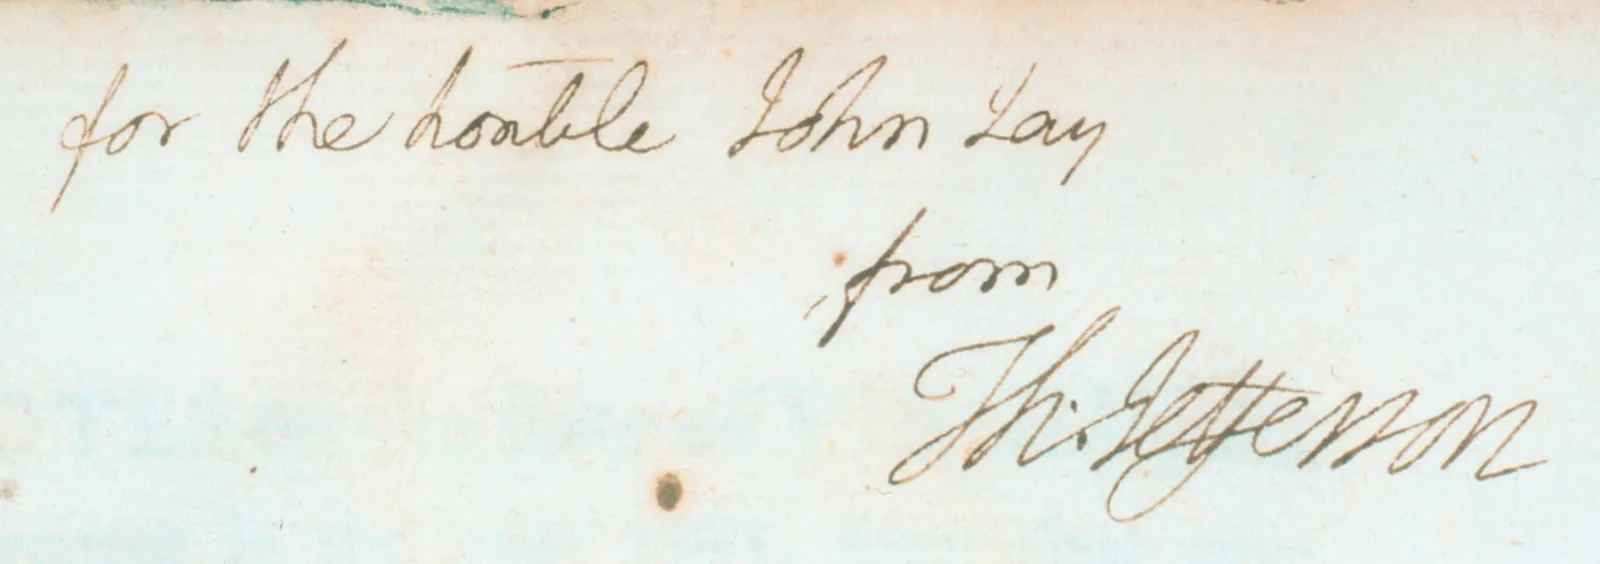 for the honble John Jay
from
Th: Jefferson